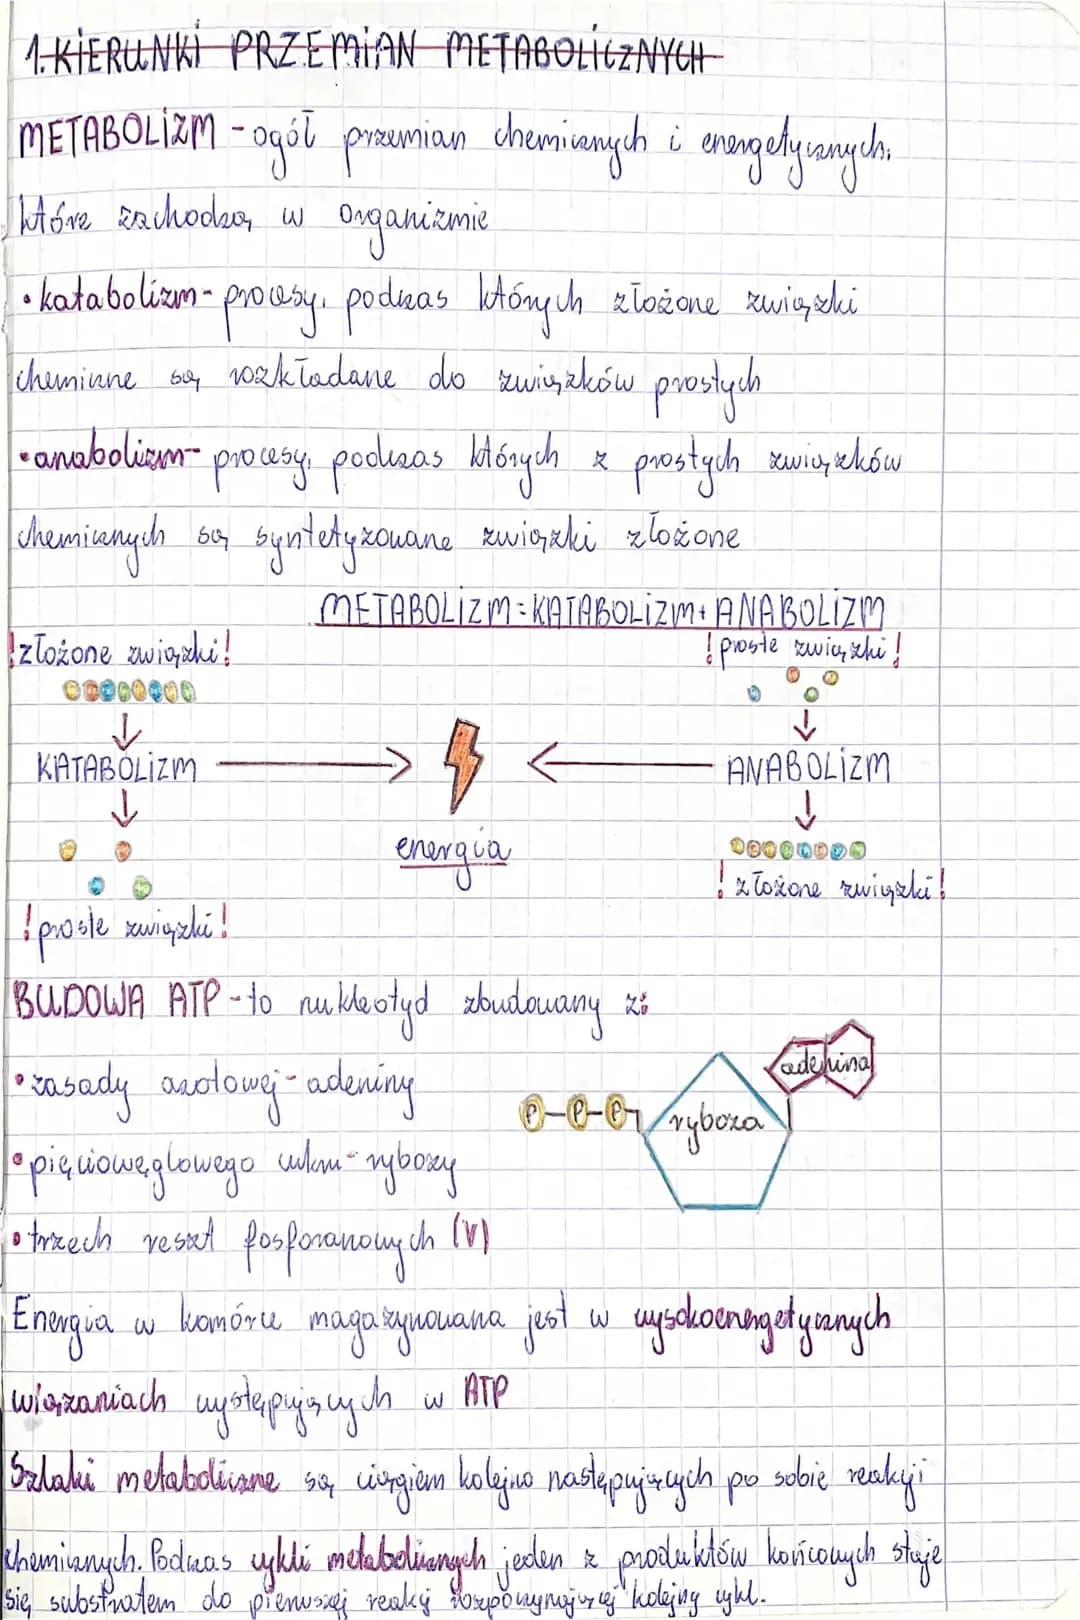 1. KIERUNKI PRZEMIAN METABOLICZNYCH
METABOLIZM - ogół przemian chemicznych i energetycznych,
które zachodzą w organizmie
• katabolizm - procesy, podczas których złożone związki
chemiczne są rozkładane do związków prostych
• anabolizm - procesy, podczas których z prostych związków
chemicznych są syntetyzowane związki złożone
METABOLIZM = KATABOLIZM + ANABOLIZM
! złożone związki !
! proste związki !
KATABOLIZM
ANABOLIZM
energia
! złożone związki !
! proste związki !
BUDOWA ATP - to nukleotyd zbudowany z:
• zasady azotowej - adeniny
adenina
P-P-P
ryboza
• pięciowęglowego cukru - rybozy
• trzech reszt fosforanowych (V)
Energia w komórce magazynowana jest w wysokoenergetycznych
wiązaniach występujących w ATP
Szlaki metaboliczne są ciągiem kolejno następujących po sobie reakcji
chemicznych. Podczas cykli metabolicznych jeden z produktów końcowych staje
się substratem do pierwszej reakcji rozpoczynającej kolejny cykl.